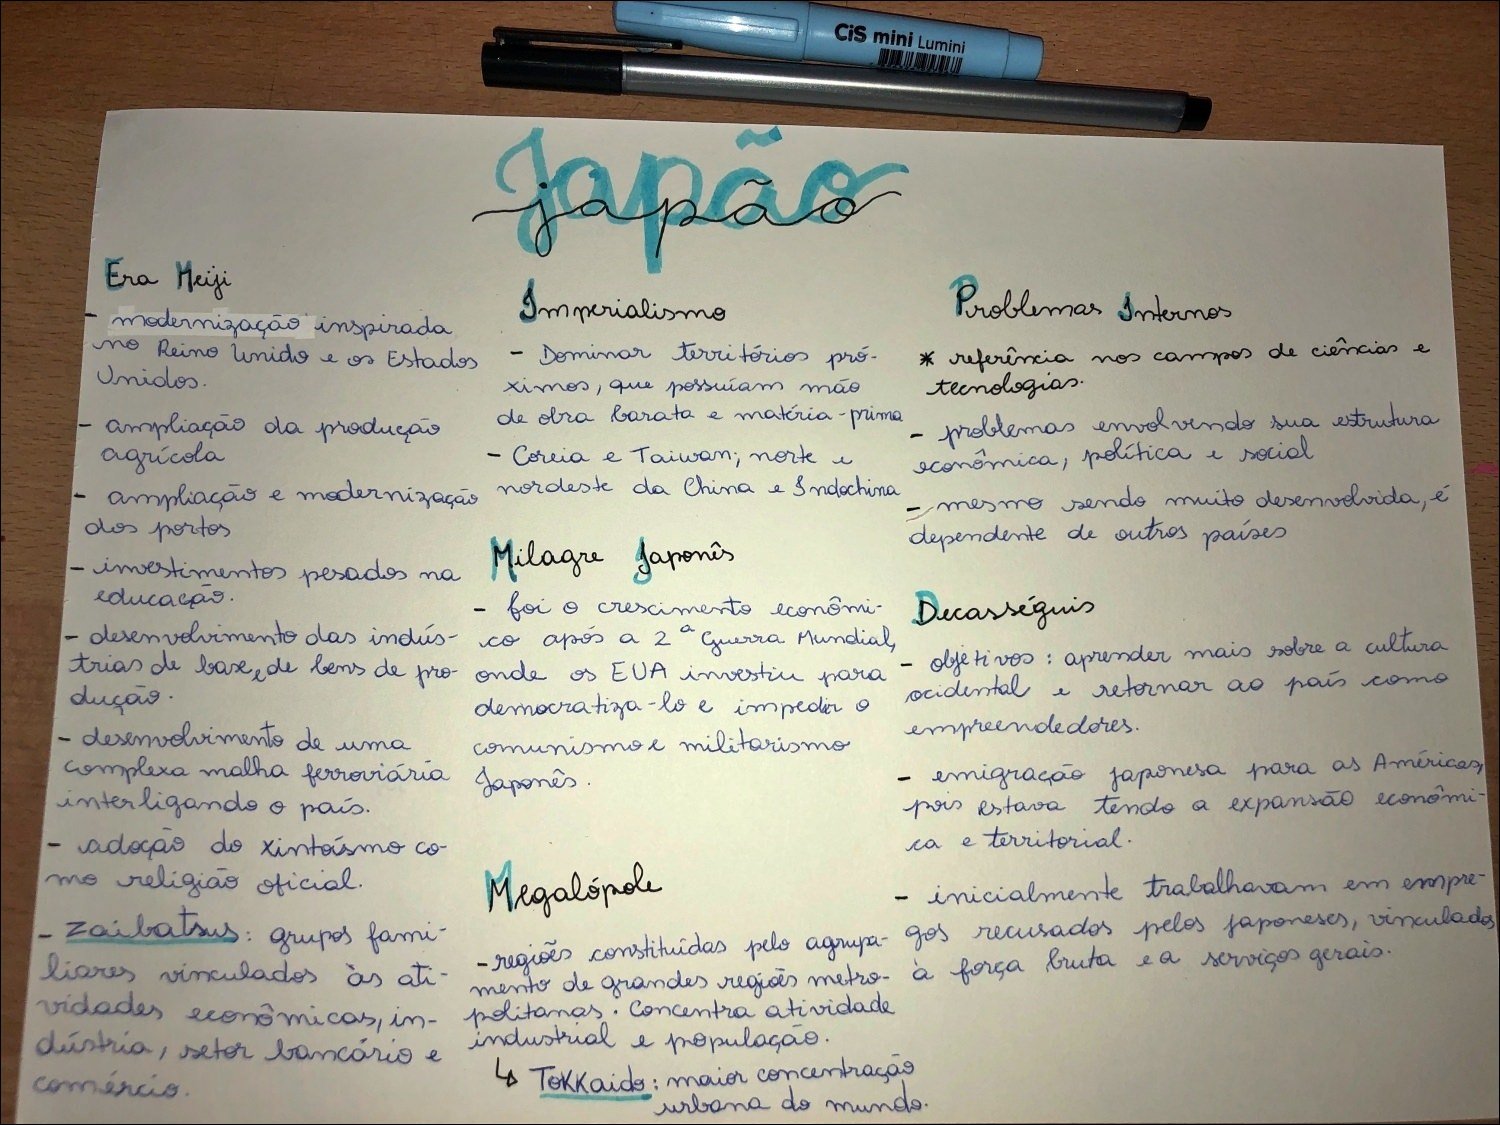 CiS mini Lumini
Japão
japão
Era Meiji
- modernização inspirada
no Reino Unido e os Estados
Unidos.
- ampliação da produção
agrícola
- ampliação e modernização
dos portos
- investimentos pesados na
educação.
- desenvolvimento das indús-
trias de base, de bens de pro-
dução.
- desenvolvimento de uma
complexa malha ferroviária
interligando o país.
- adoção do xintoísmo co-
mo religião oficial.
- Zaibatsus: grupos fami-
liares vinculados às ati-
vidades econômicas, in-
dústria, setor bancário e
comércio.
Imperialismo
- Dominar territórios pró-
ximos, que possuíam mão
de obra barata e matéria-prima
- Coreia e Taiwan; norte e
nordeste da China e Indochina
Milagre Japonês
- foi o crescimento econômi-
co após a 2ª Guerra Mundial,
onde os EUA investiu para
democratiza-lo e impedir o
comunismo e militarismo
Japonês.
Megalópole
- regiões constituídas pelo agrupa-
mento de grandes regiões metro-
politanas. Concentra atividade
industrial e população.
↳ Tokkaido: maior concentração
urbana do mundo.
Problemas Internos
* referência nos campos de ciências e
tecnologias.
- problemas envolvendo sua estrutura
econômica, política e social
- mesmo sendo muito desenvolvida, é
dependente de outros países
Decasséguis
- objetivos: aprender mais sobre a cultura
ocidental e retornar ao país como
empreendedores.
- emigração japonesa para as Américas,
pois estava tendo a expansão econômi-
ca e territorial.
- inicialmente trabalhavam em empre-
gos recusados pelos japoneses, vinculados
à força bruta e a serviços gerais.